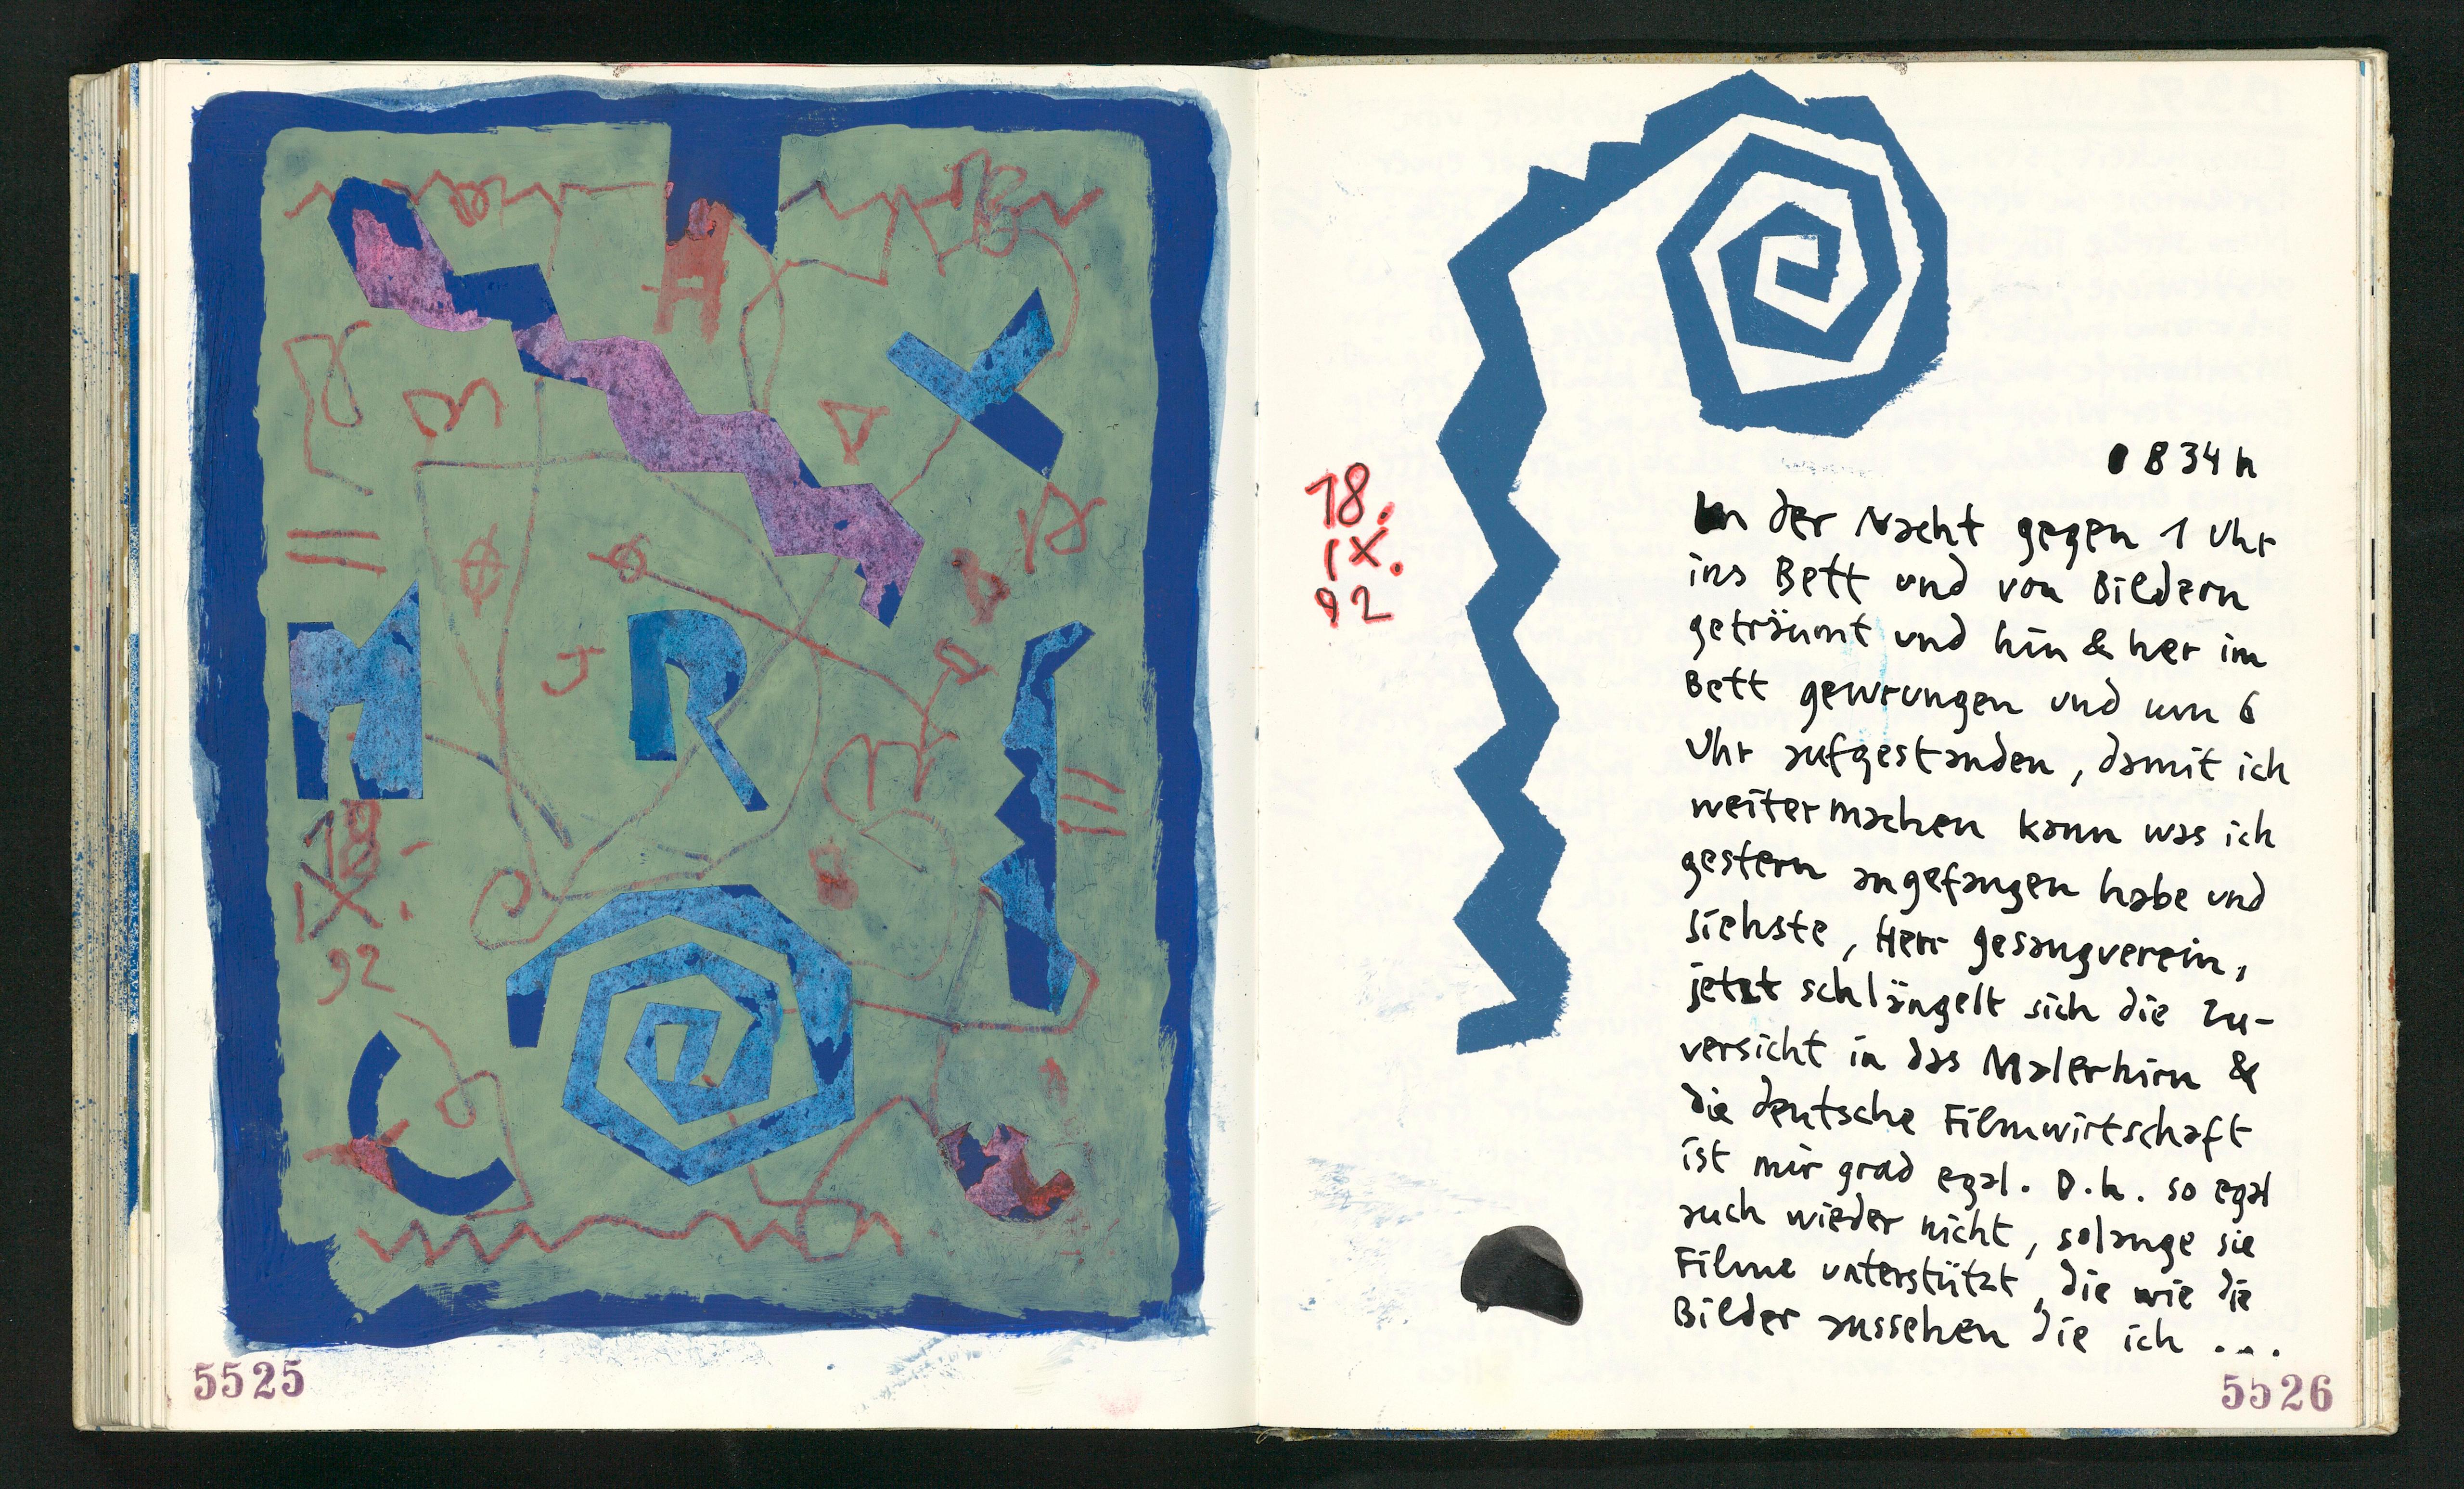 18
IX.
92
M
R
5525
0834h
18.
IX.
92
In der Nacht gegen 1 Uhr
ins Bett und von Bildern
geträumt und hin & her im
Bett gewrungen und um 6
Uhr aufgestanden, damit ich
weitermachen kann was ich
gestern angefangen habe und
siehste, Herr Gesangverein,
jetzt schlängelt sich die Zu-
versicht in das Malerhirn &
die deutsche Filmwirtschaft
ist mir grad egal. D.h. so egal
auch wieder nicht, solange sie
Filme unterstützt, die wie die
Bilder aussehen die ich ...
5526